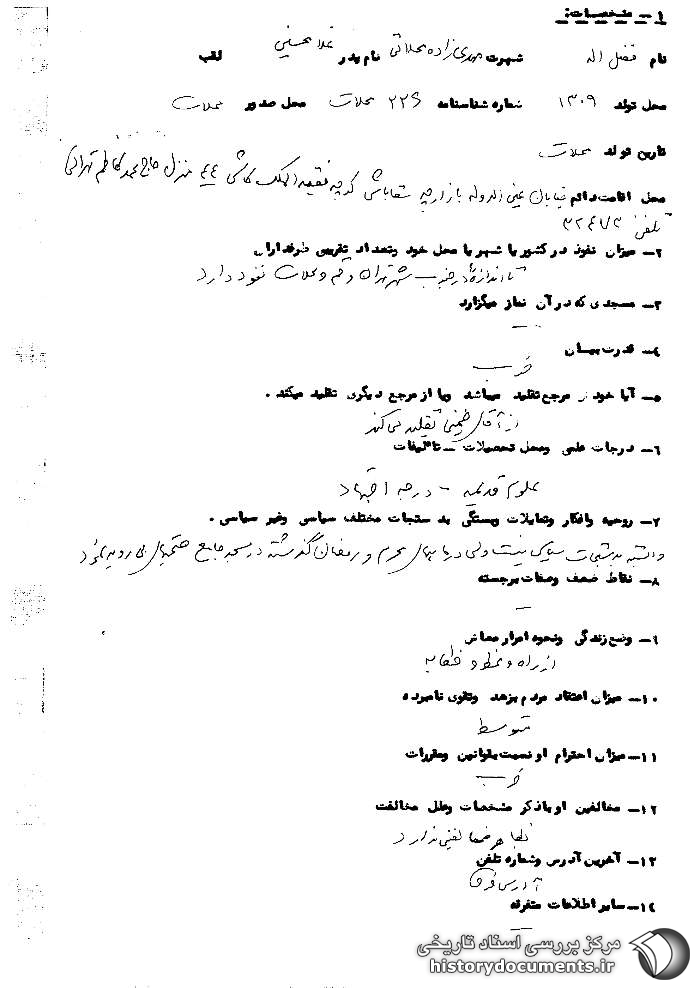 ۱- مشخصات:
نام فضل اله شهرت مهدی زاده محلاتی نام پدر غلامحسین لقب
محل تولد ۱۳۰۹ شماره شناسنامه ۲۲۶ محلات محل صدور محلات
تاریخ تولد محلات
محل اقامت دائم خیابان عین الدوله بازارچه سقاباشی کوچه فقیه الملک کاشی ۴۴ منزل حاج محمد کاظم تهرانی
تلفن
۲- میزان نفوذ در کشور یا شهر یا محل خود وتعداد تقریبی طرفداران
تا اندازهٔ در جنوب شهر تهران و قم و محلات نفوذ دارد
۳- مسجدی که در آن نماز میگزارد
-
۴- قدرت بیان
خوب
۵- آیا خود مرجع تقلید میباشد ویا از مرجع دیگری تقلید میکند .
از آقای خمینی تقلید می کند
۶- درجات علمی ومحل تحصیلات - تالیفات
علوم قدیمیه - درجه اجتهاد
۷- روحیه وافکار وتمایلات وبستگی به دستجات مختلف سیاسی وغیر سیاسی .
وابسته بدستجات سیاسی نیست ولی در ماههای محرم و رمضان گذشته در مسجد جامع
۸- نقاط ضعف وصفات برجسته
-
۹- وضع زندگی ونحوه امرار معاش
از راه وعظ و خطابه
۱۰- میزان اعتقاد مردم بزهد وتقوی نامبرده
متوسط
۱۱- میزان احترام او نسبت بقوانین ومقررات
خوب
۱۲- مخالفین او باذکر مشخصات وعلل مخالفت
ظاهراً مخالفینی ندارد
۱۳- آخرین آدرس وشماره تلفن
آدرس فوق
۱۴- سایر اطلاعات متفرقه
-
مرکز بررسی اسناد تاریخی
historydocuments.ir